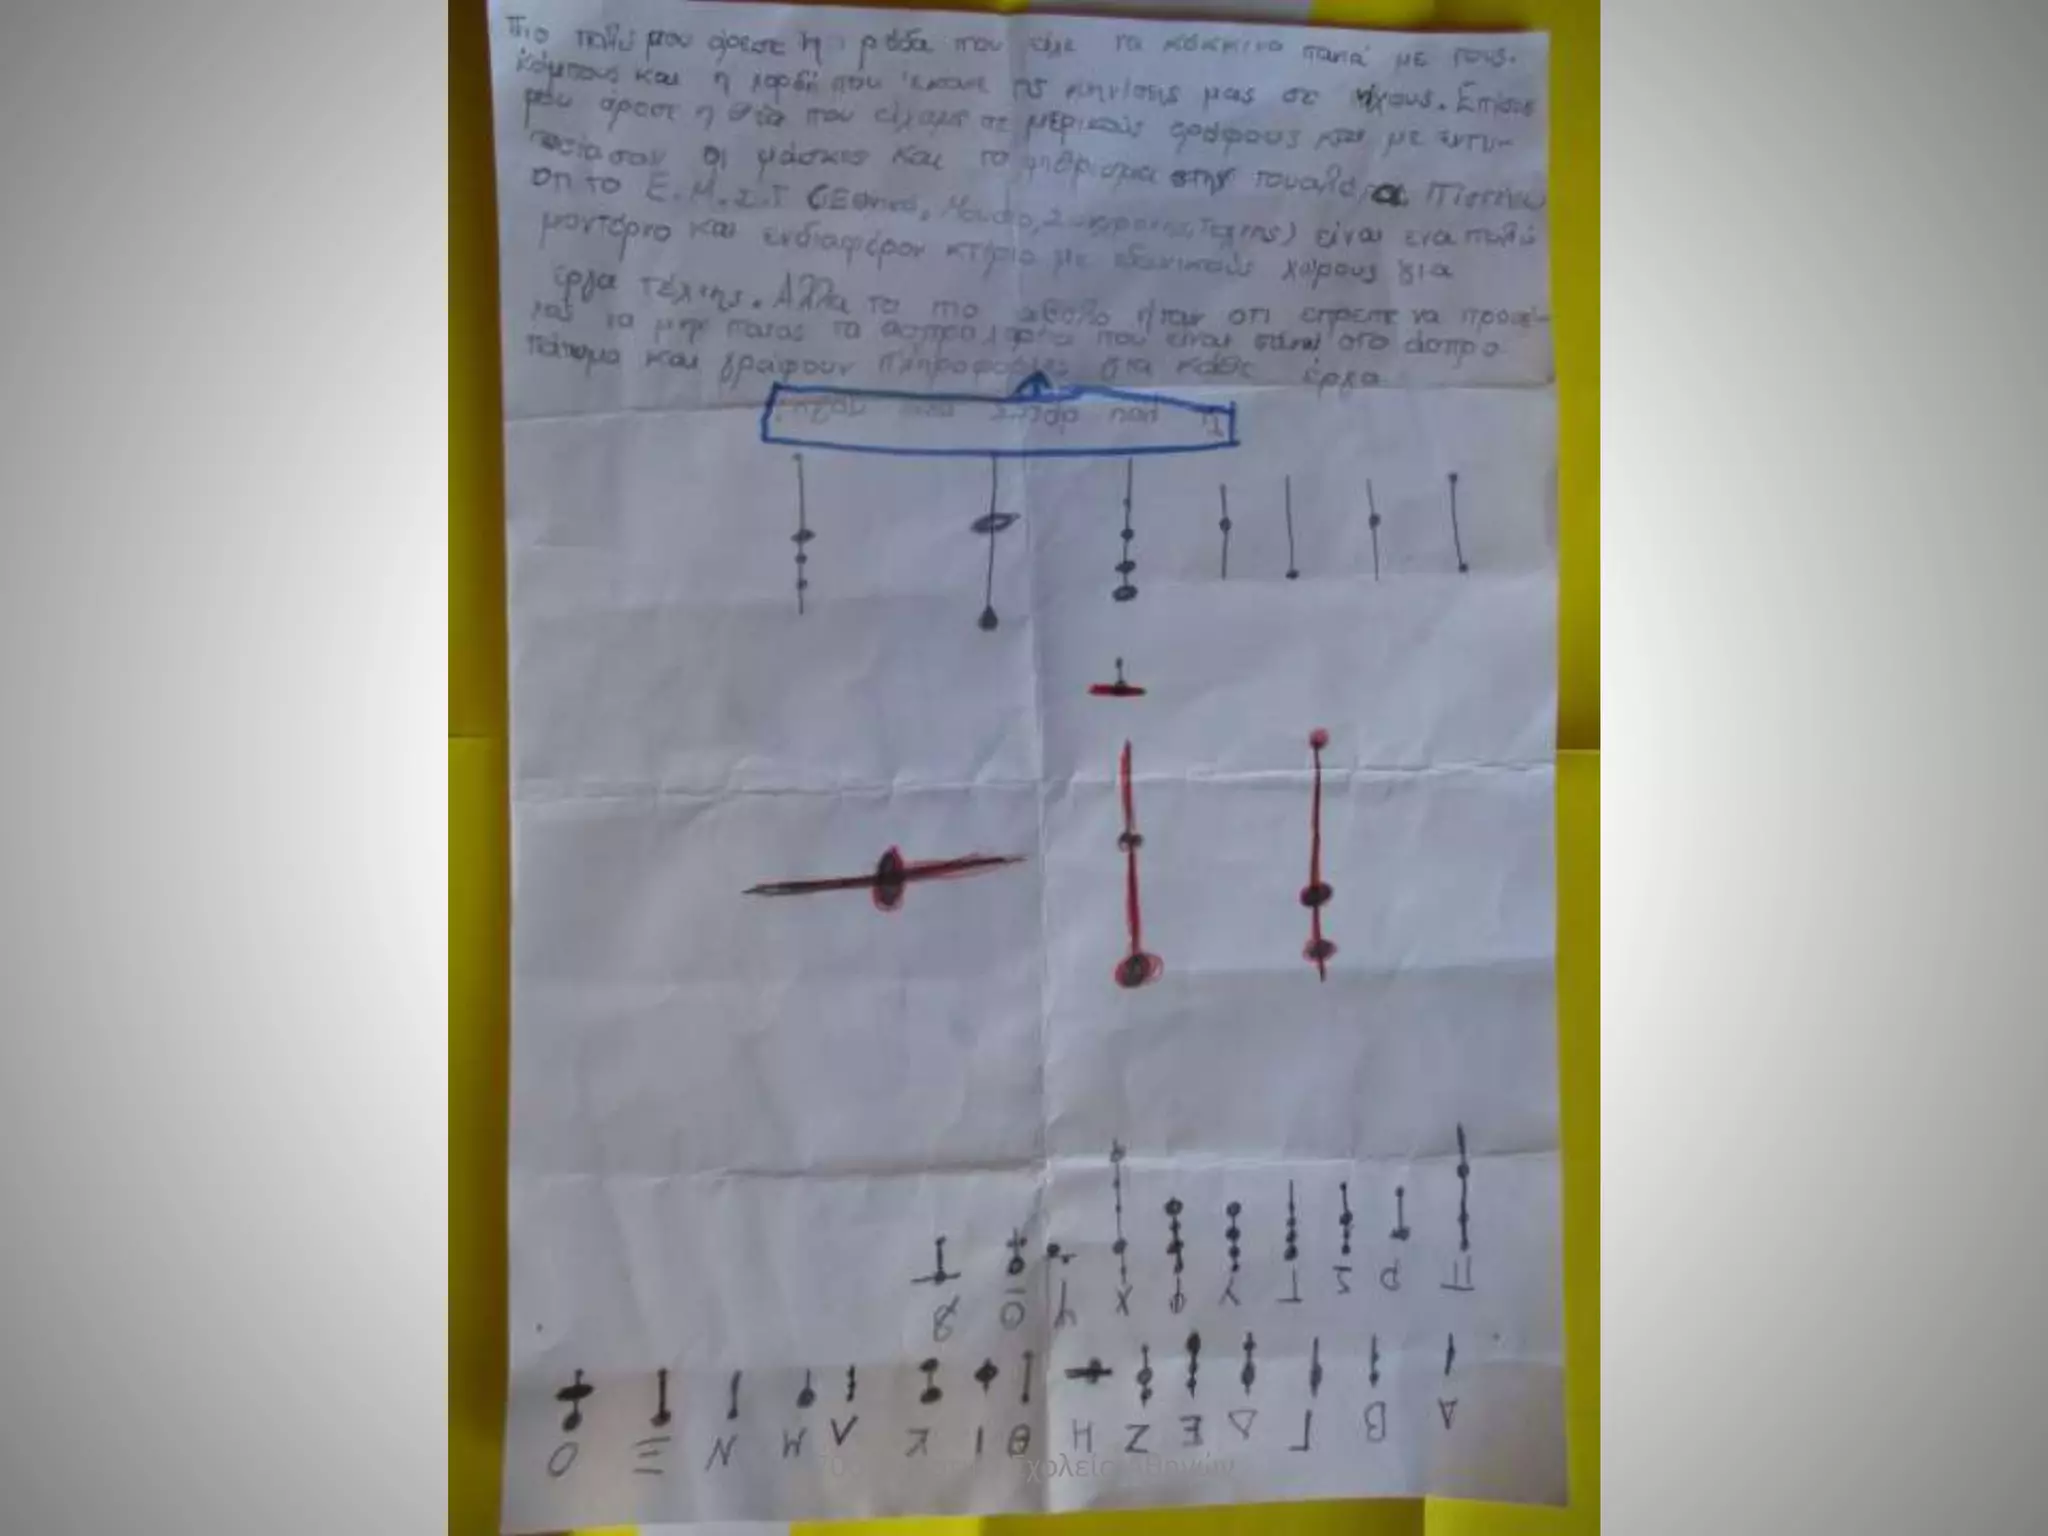 πιο πολύ μου άρεσε η ρόδα που είχε τα κόκκινα πανιά με τους
κόμπους και η χορδή που έκανε τις κινήσεις μας σε ήχους. Επίσης
μου άρεσε η θέα που είχαμε σε μερικούς ορόφους και με εντυ-
πωσίασαν οι μάσκες και το στην τουαλέτα. Πιστεύω
οτι το Ε.Μ.Σ.Τ (Εθνικό, Μουσείο, Σύγχρονης, Τέχνης) είναι ενα πολύ
μοντέρνο και ενδιαφέρον κτήριο με χώρους για
έργα τέχνης. Αλλα το πιο ήταν οτι επρεπε να προσέ-
χας να μην πατας τα άσπρα που είναι πάνω στο άσπρο
πάτωμα και γράφουν πληροφορίες για κάθε έργο
Τι μου άρεσε πιο πολύ;
Α Β Γ Δ Ε Ζ Η Θ Ι Κ Λ Μ Ν Ξ Ο
Π Ρ Σ Τ Υ Φ Χ Ψ Ω